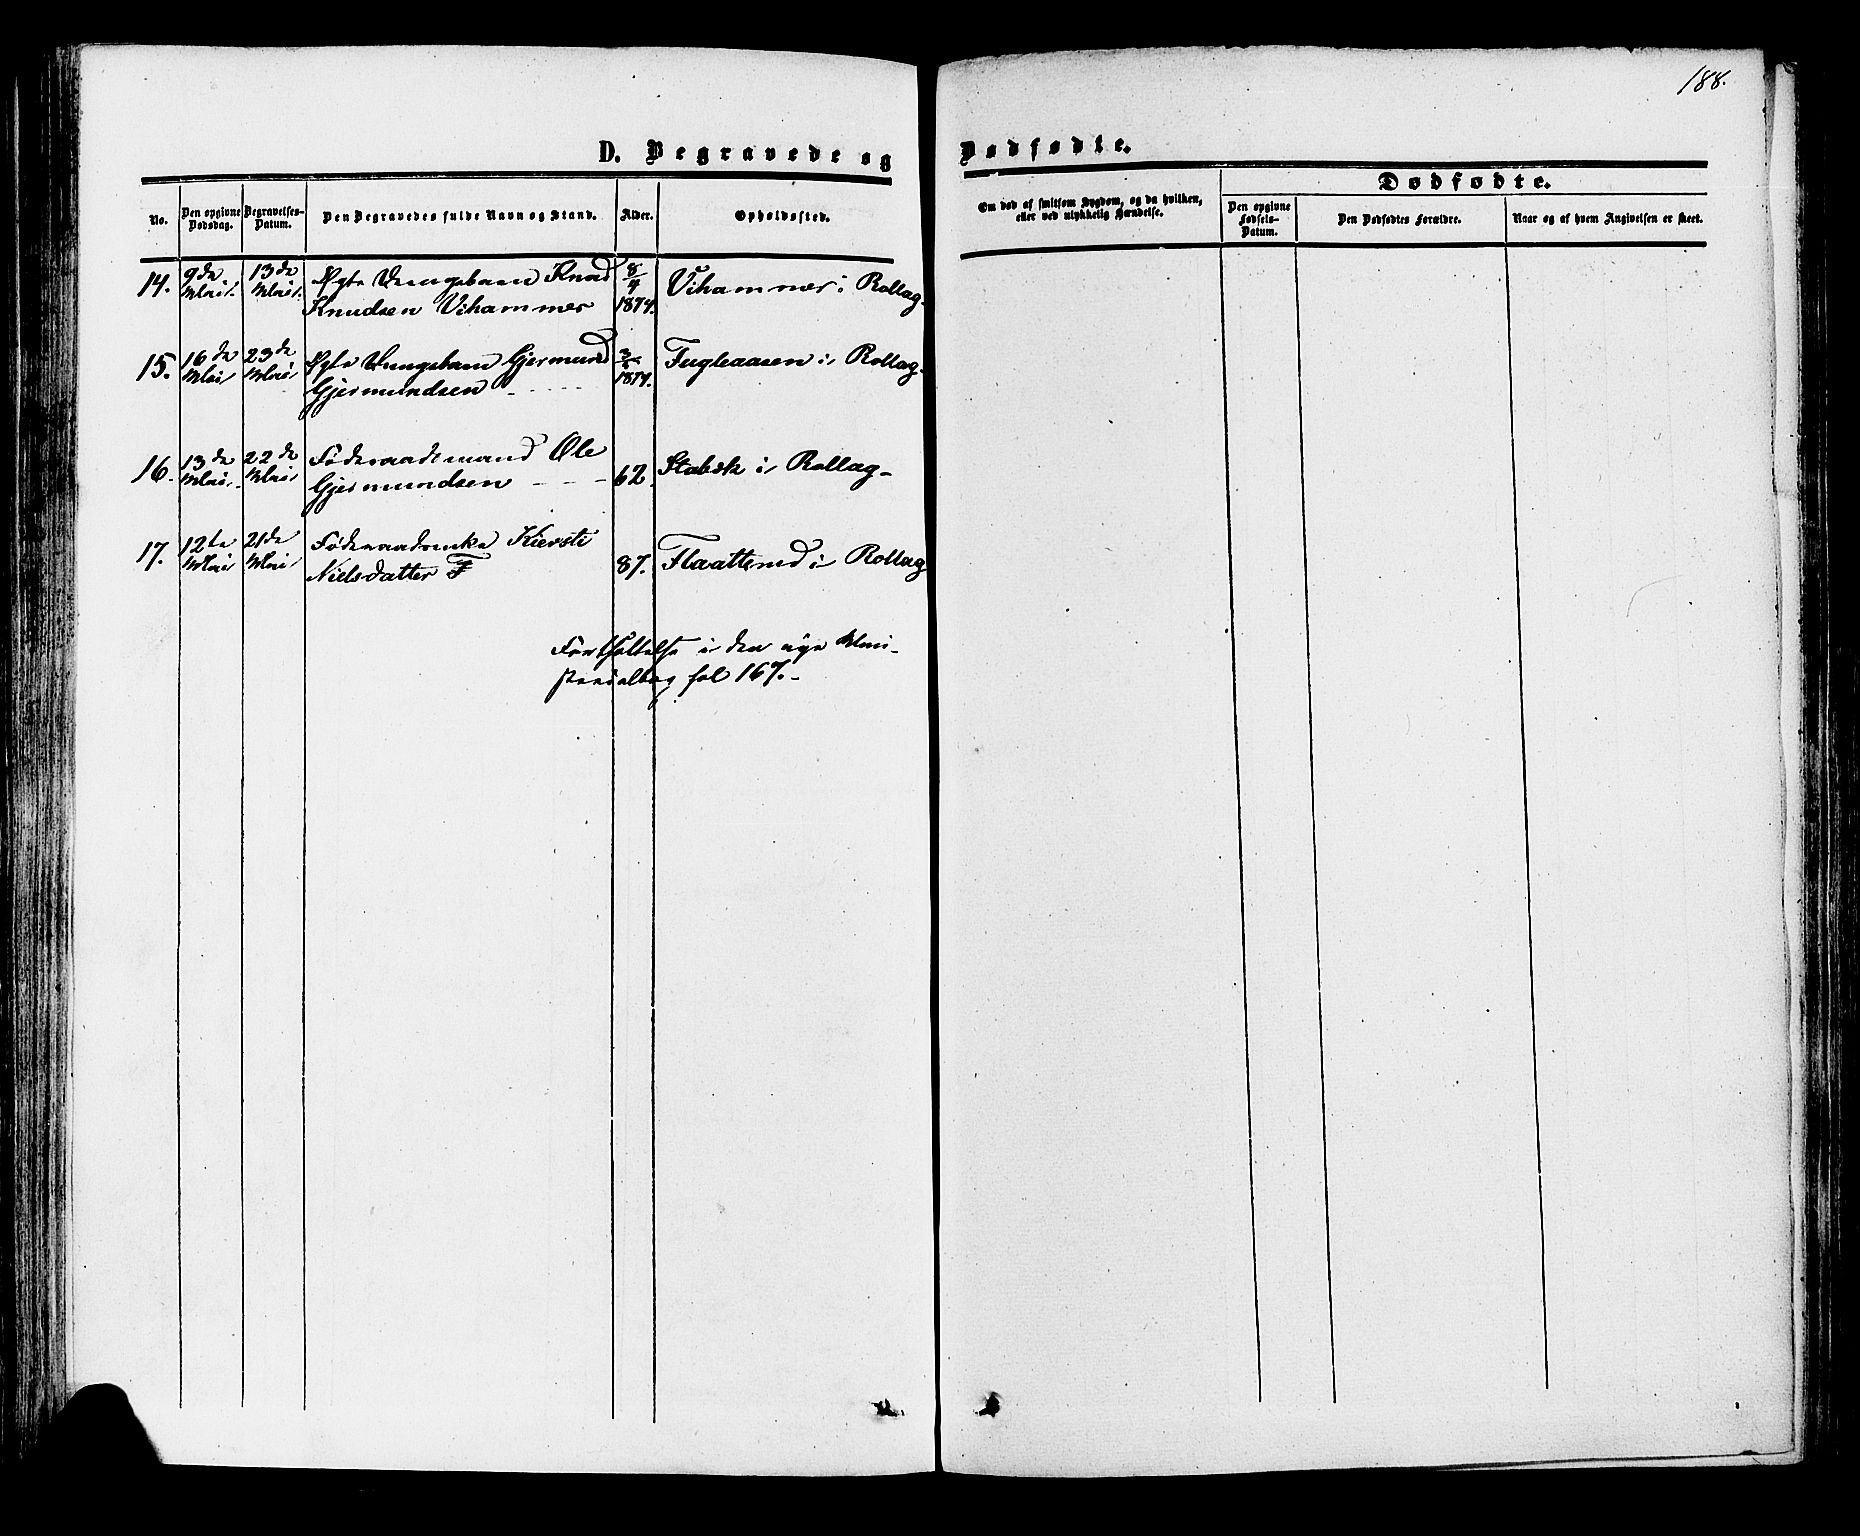 188.
D. Begravede og Dødfødte.
No.
Den opgivne Dødsdag.
Begravelses-Datum.
Den Begravedes fulde Navn og Stand.
Alder.
Opholdssted.
Om død af smitsom Sygdom, og da hvilken, eller ved ulykkelig Hændelse.
Dødfødte.
Den opgivne Fødsels-Datum.
Den Dødfødtes Forældre.
Naar og af hvem Angivelsen er skeet.
14. 9de Mai. 13de Mai. Ægte Drengebarn Knud Knudsen Vihammer 8/4 1874. Vihammer i Rollag
15. 16de Mai 23de Mai Ægte Drengebarn Gjermund Gjermundsen 1874. Fugleaasen i Rollag
16. 13de Mai. 22de Mai Føderaadsmand Ole Gjermundsen 62. Stabæk i Rollag
17. 12te Mai 21de Mai Føderaadsenke Kiersti Nielsdatter F 87. Flaatterud i Rollag
Fortsættelse i den nye Mini-
sterialbog fol 167.